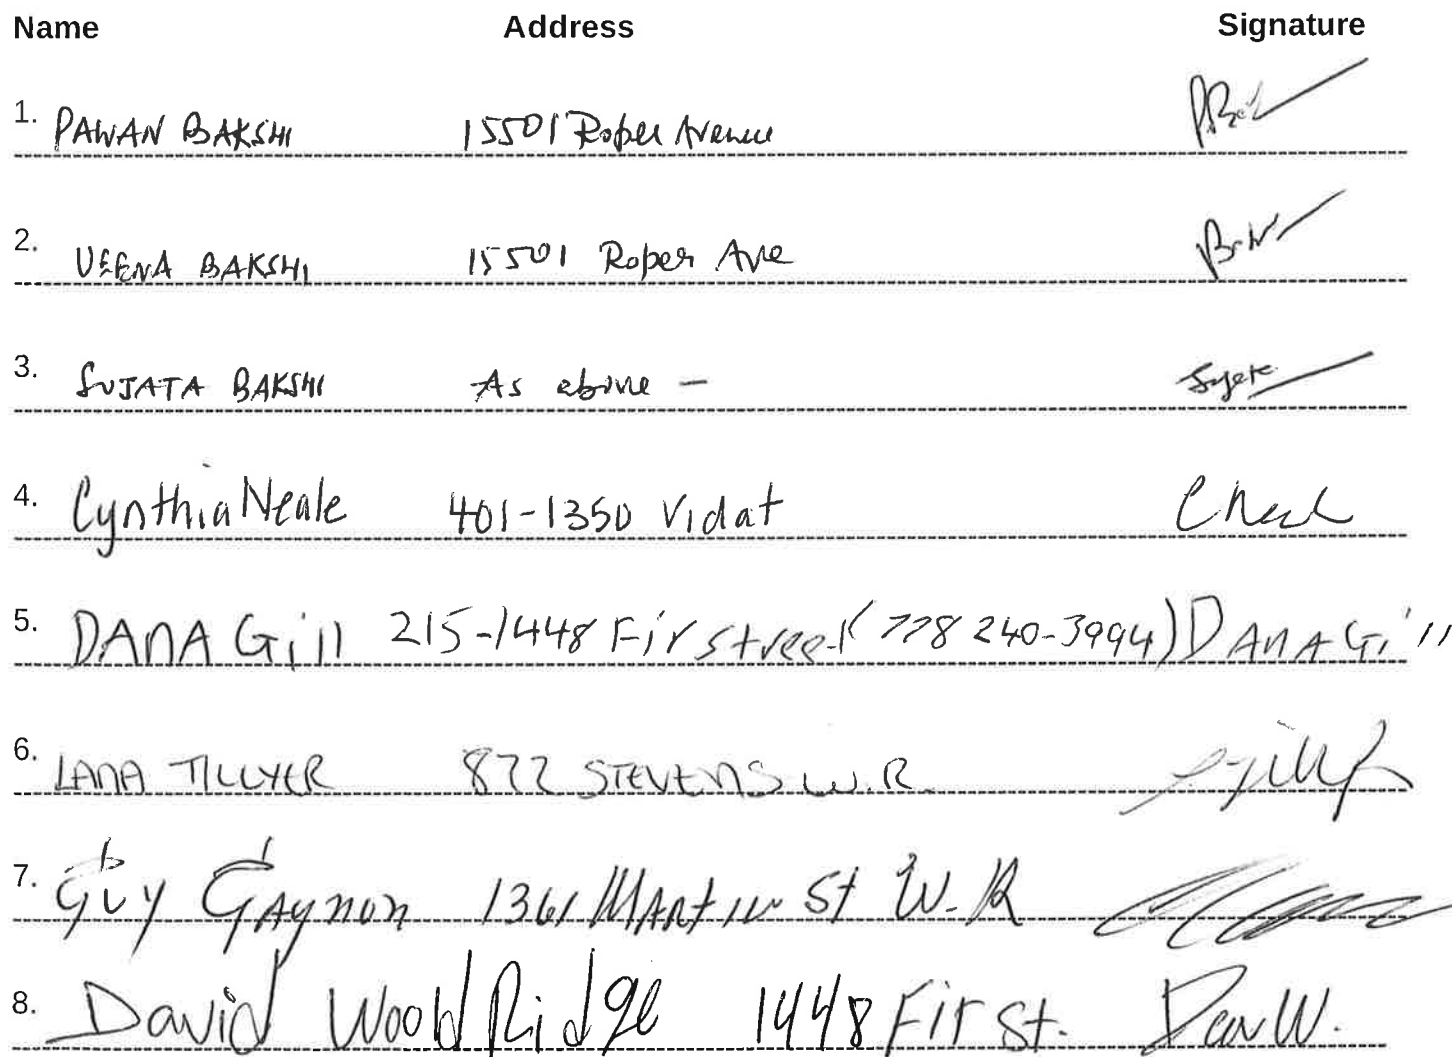 Name Address Signature
1. PAWAN BAKSHI 15501 Roper Avenue
2. VEENA BAKSHI 15501 Roper Ave
3. SUJATA BAKSHI As above -
4. Cynthia Neale 401-1350 Vidal
5. DANA Gill 215-1448 Fir street (778 240-3994) DANA Gill
6. LANA TILLYER 872 STEVENS W.R.
7. GUY GAYNON 1361 MARTIN St W.R
8. David WoodRidge 1448 Fir St. Dav W.